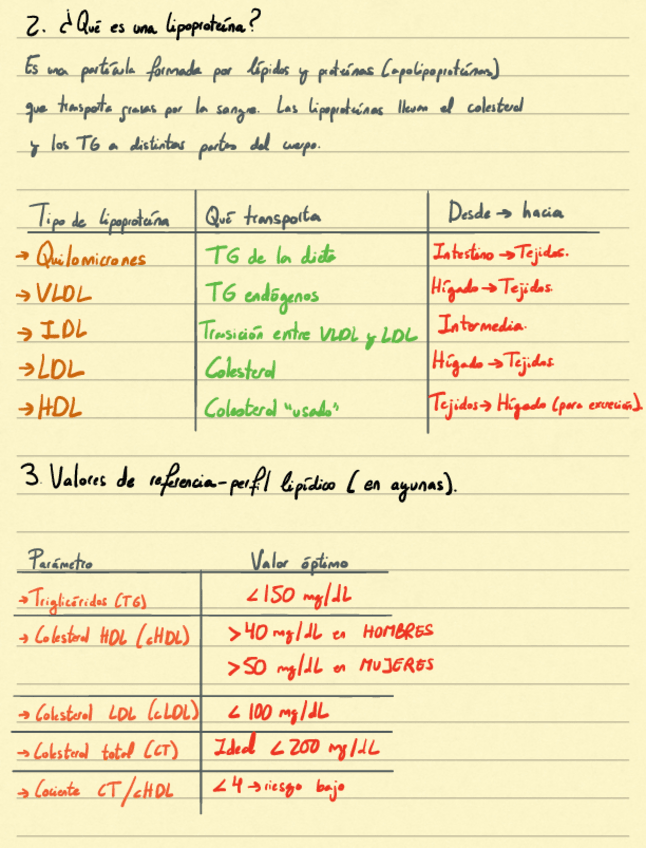 2. ¿Qué es una lipoproteína?
Es una partícula formada por lípidos y proteínas (apolipoproteínas)
que transporta grasas por la sangre. Las lipoproteínas llevan el colesterol
y los TG a distintas partes del cuerpo.
Tipo de lipoproteína Qué transporta Desde → hacia
→ Quilomicrones TG de la dieta Intestino → Tejidos.
→ VLDL TG endógenos Hígado → Tejidos.
→ IDL Transición entre VLDL y LDL Intermedia.
→ LDL Colesterol Hígado → Tejidos
→ HDL Colesterol "usado" Tejidos → Hígado (para excreción).
3. Valores de referencia-perfil lipídico (en ayunas).
Parámetro Valor óptimo
→ Triglicéridos (TG) <150 mg/dL
→ Colesterol HDL (cHDL) >40 mg/dL en HOMBRES
>50 mg/dL en MUJERES
→ Colesterol LDL (cLDL) < 100 mg/dL
→ Colesterol total (CT) Ideal <200 mg/dL
→ Cociente CT/cHDL <4 → riesgo bajo